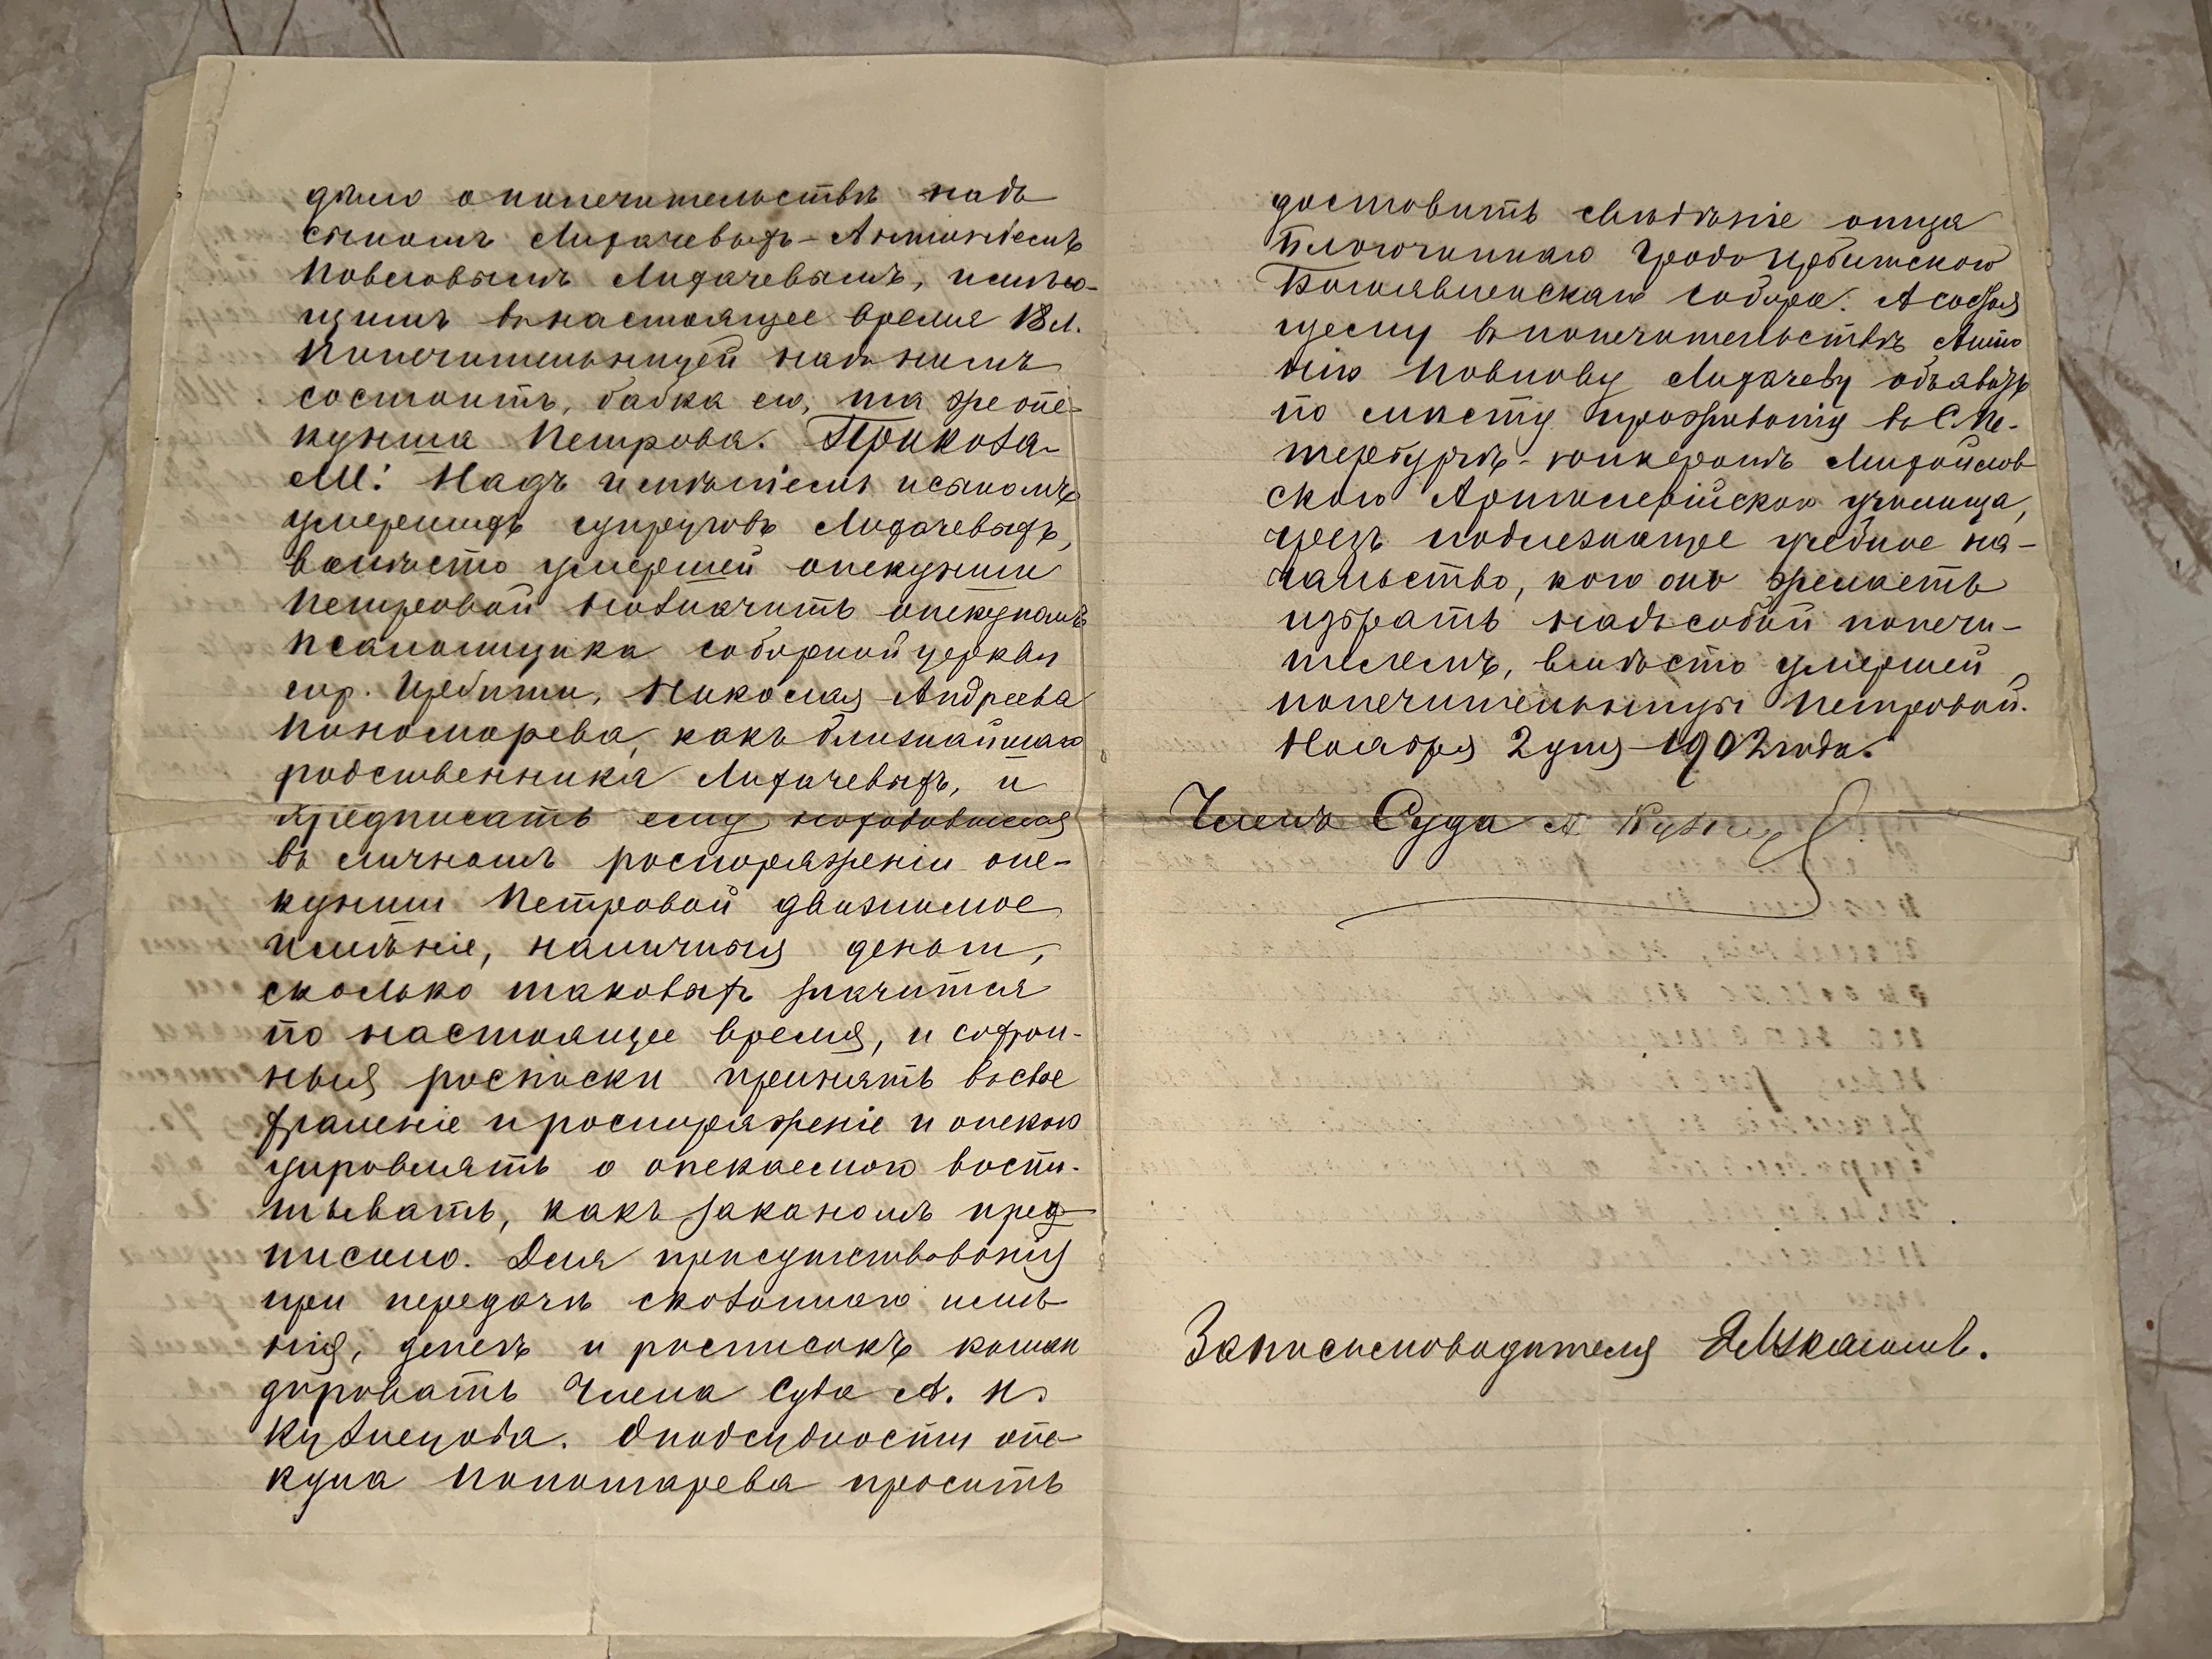 дѣло о попечительствѣ надъ
сыномъ Лихачевыхъ-Антоніемъ
Павловымъ Лихачевымъ, имѣю-
щимъ въ настоящее время 18 л.
Попечительницей надъ нимъ
состоитъ, бабка его, та же опе-
кунша Петрова. Приказа-
ли: Надъ имѣніемъ и сыномъ
умершихъ супруговъ Лихачевыхъ,
вмѣсто умершей опекунши
Петровой назначить опекуномъ
псаломщика соборной церкви
гор. Ирбити, Николая Андреева
Пономарева, какъ ближайшаго
родственника Лихачевыхъ, и
предписать ему находившееся
въ личномъ распоряженіи опе-
кунши Петровой движимое
имѣніе, наличныя деньги,
сколько таковыхъ значится
по настоящее время, и сохран-
ныя росписки принять въ свое
храненіе и распоряженіе и опекою
управлять а опекаемаго воспи-
тывать, какъ закономъ пред-
писано. Для присутствованія
при передачѣ сказаннаго имѣ
нія, денегъ и росписокъ коман
дировать Члена Суда А. И.
Кузнецова. О подсудности опе
куна Пономарева просить
доставить свѣдѣніе отца
Благочиннаго Градо Ирбитскаго
Богоявленскаго собора. А состоя
щему въ попечительствѣ Анто
нію Павлову Лихачеву объявить
по мѣсту проживанія въ С. Пе-
тербургѣ - юнкеромъ Михайлов
скаго Артилерійскаго училища,
чрезъ подлежащее учебное на-
чальство, кого оно желаетъ
избрать надъ собой попечи-
телемъ, вмѣсто умершей
попечительницы Петровой.
Ноября 2 дня 1902 года.
Членъ Суда А Кузнец
За письмоводителя